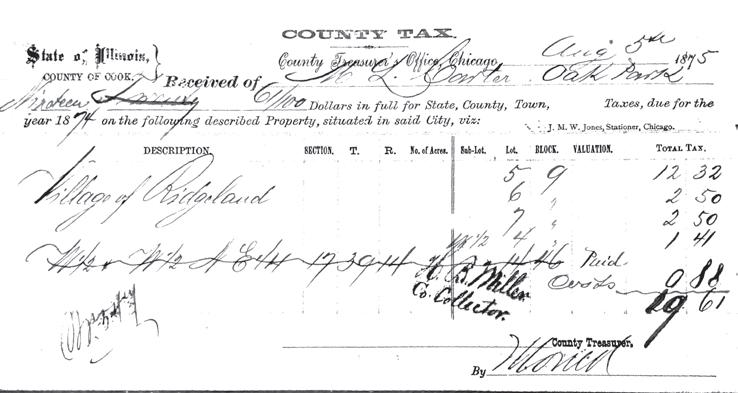 COUNTY TAX.
State of Illinois,
COUNTY OF COOK.
County Treasurer's Office, Chicago, Aug 5th 1875
Received of M. L. Carter Oak Park
Nineteen 61/100 Dollars in full for State, County, Town, Taxes, due for the
year 1874 on the following described Property, situated in said City, viz:
J. M. W. Jones, Stationer, Chicago.
DESCRIPTION. SECTION. T. R. No. of Acres. Sub-Lot. Lot. BLOCK. VALUATION. TOTAL TAX.
5 9 12 32
Village of Ridgeland 6 " 2 50
7 " 2 50
W 1/2 4 " 1 41
W 1/2 W 1/2 N E 1/4 17 39 14 Paid
Costs 0 88
H. B. Miller
Co. Collector.
19 61
County Treasurer,
By